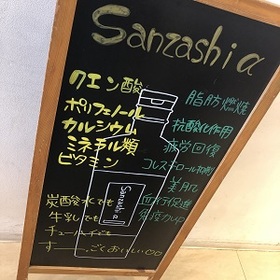 Sanzashi α
クエン酸
ポリフェノール
カルシウム
ミネラル類
ビタミン
脂肪燃焼
抗酸化作用
疲労回復
コレステロール抑制
美肌
血行促進
免疫力up
Sanzashi α
炭酸水でも
牛乳でも
すーーごくおいしい○○